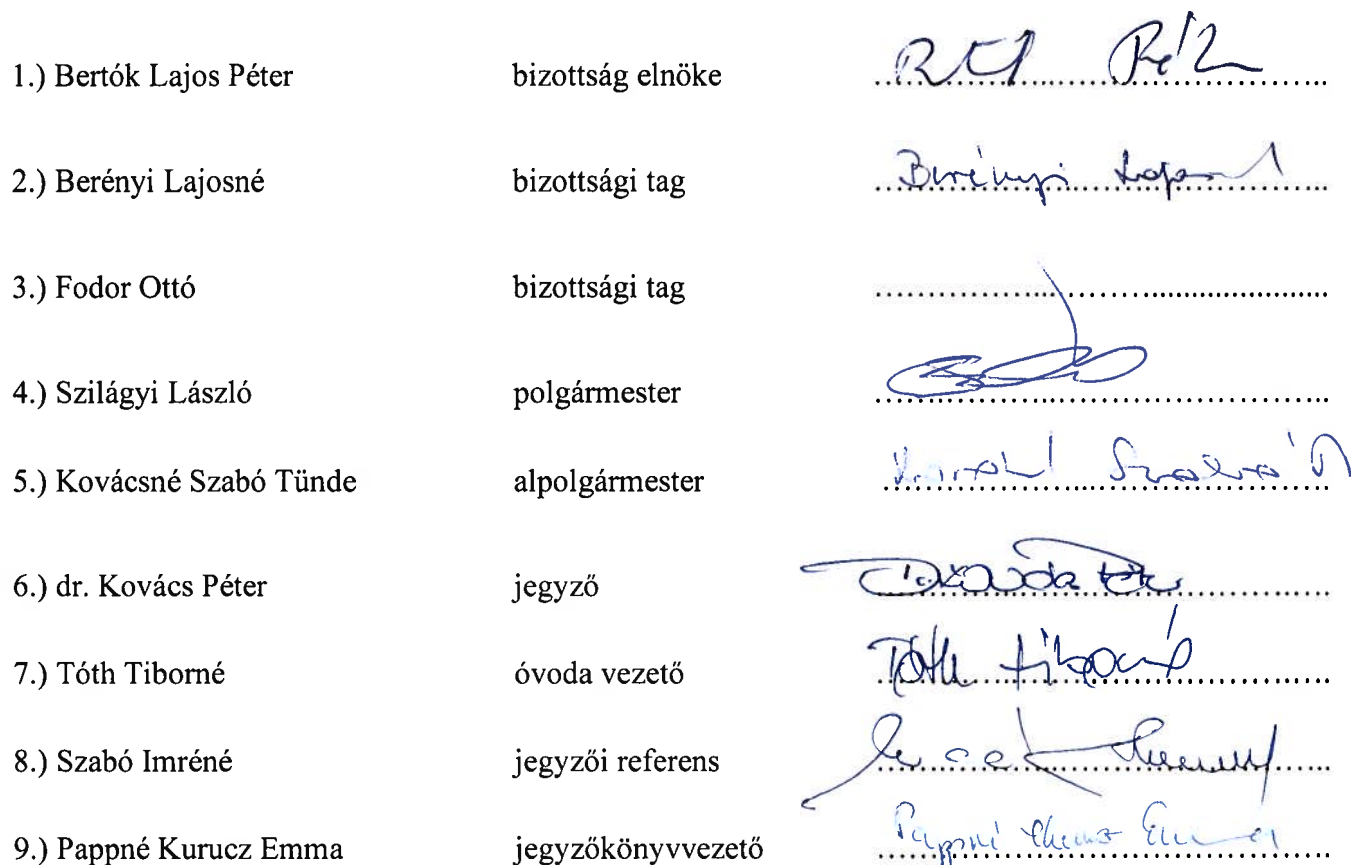 1.) Bertók Lajos Péter bizottság elnöke ........................................
2.) Berényi Lajosné bizottsági tag Berényi Lajosné
3.) Fodor Ottó bizottsági tag ........................................
4.) Szilágyi László polgármester ........................................
5.) Kovácsné Szabó Tünde alpolgármester ........................................
6.) dr. Kovács Péter jegyző ........................................
7.) Tóth Tiborné óvoda vezető Tóth Tiborné
8.) Szabó Imréné jegyzői referens ........................................
9.) Pappné Kurucz Emma jegyzőkönyvvezető Pappné Kurucz Emma